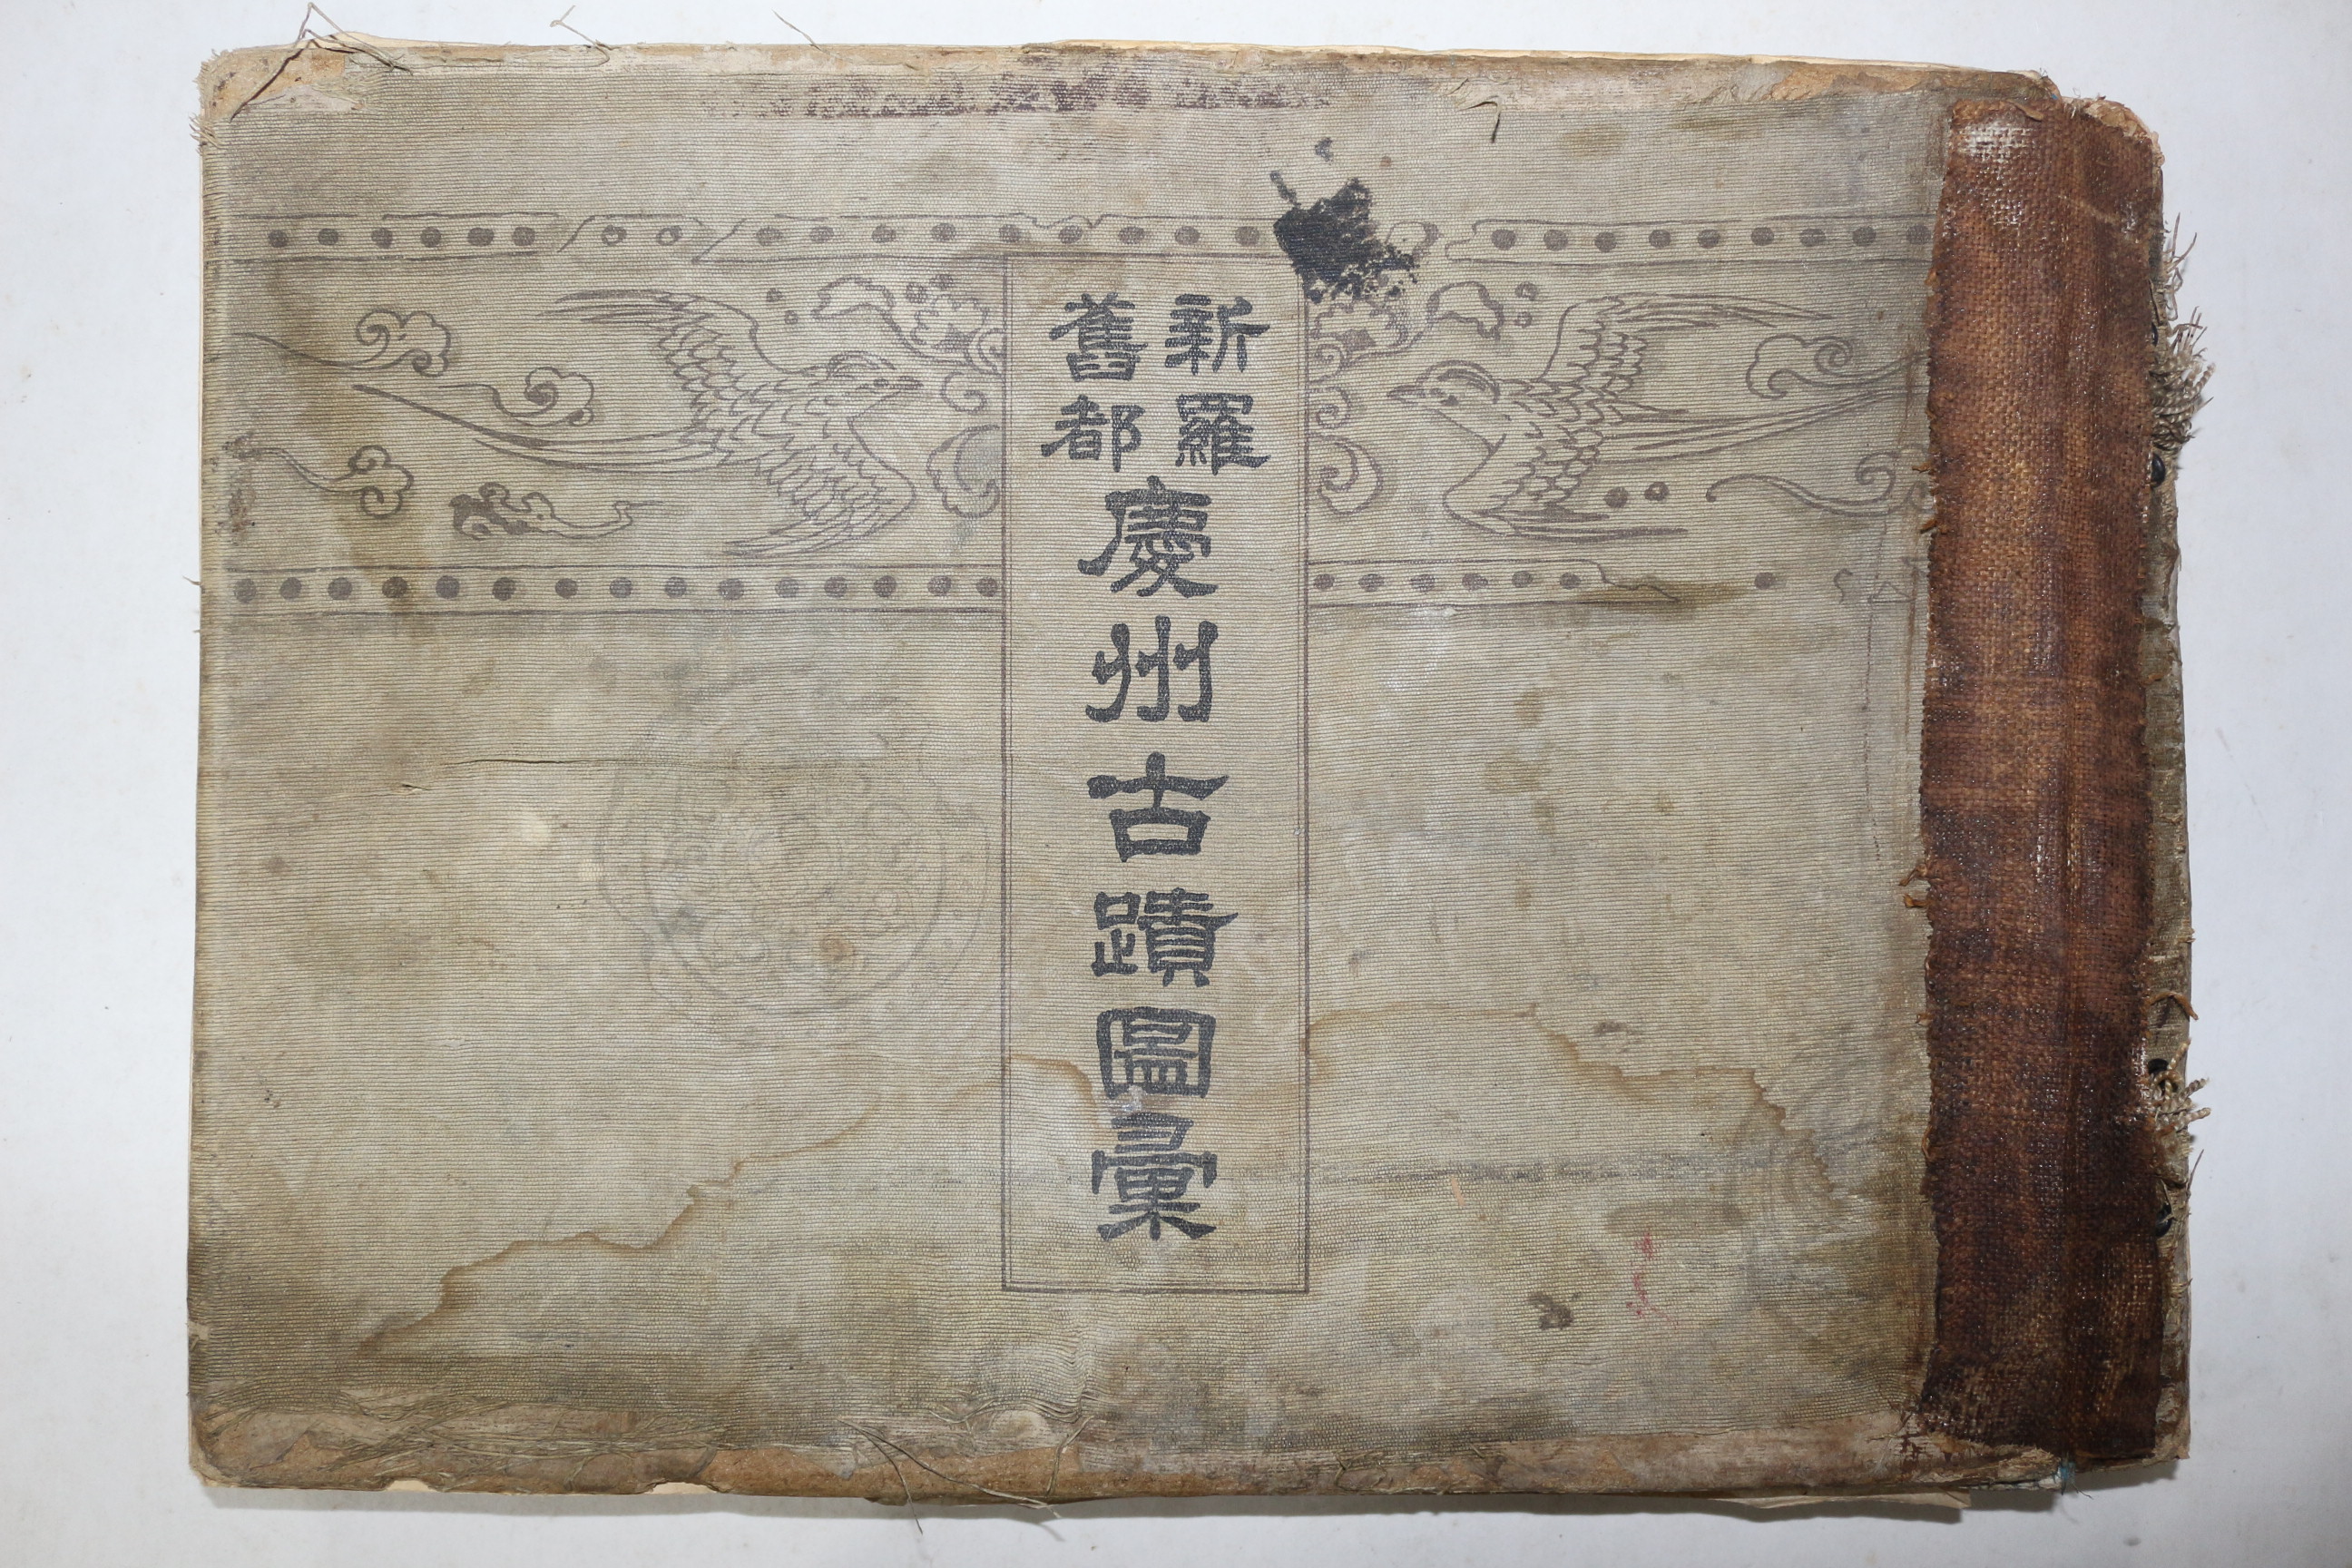 新羅
舊都
慶州古蹟圖彙